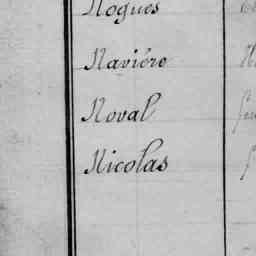 Nogues
Navière
Noval
Nicolas